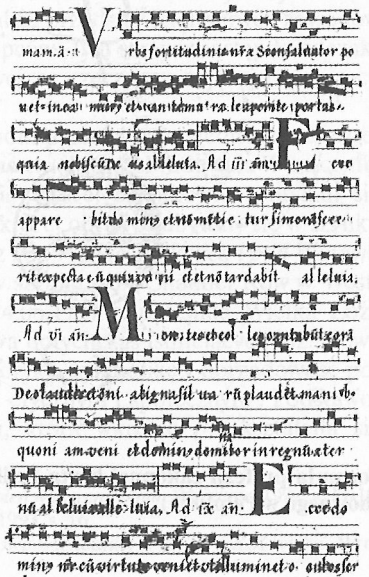 mam. ā. a V rbs fortitudinis nr̄æ Sion saluator po
net in ea mury et an temu rale aporite portas.
quia nobiscū De us alleluia. Ad iii an̄ E cce
appare bit do miny et non m̄tie tur si mora fece
rit expecta eū quia ve ni et et nō tardabit al leluia.
Ad vi an̄ M on tes et col les cantabūt corā
Deo laude et om̄i a ligna sil ua rū plaudēt mani bb.
quoni am veni et dominy domitor in regnū eter
nū al leluia alle luia. Ad ix an̄. E cce do
miny nr̄ cū virtute veniet et illuminet o culos ser